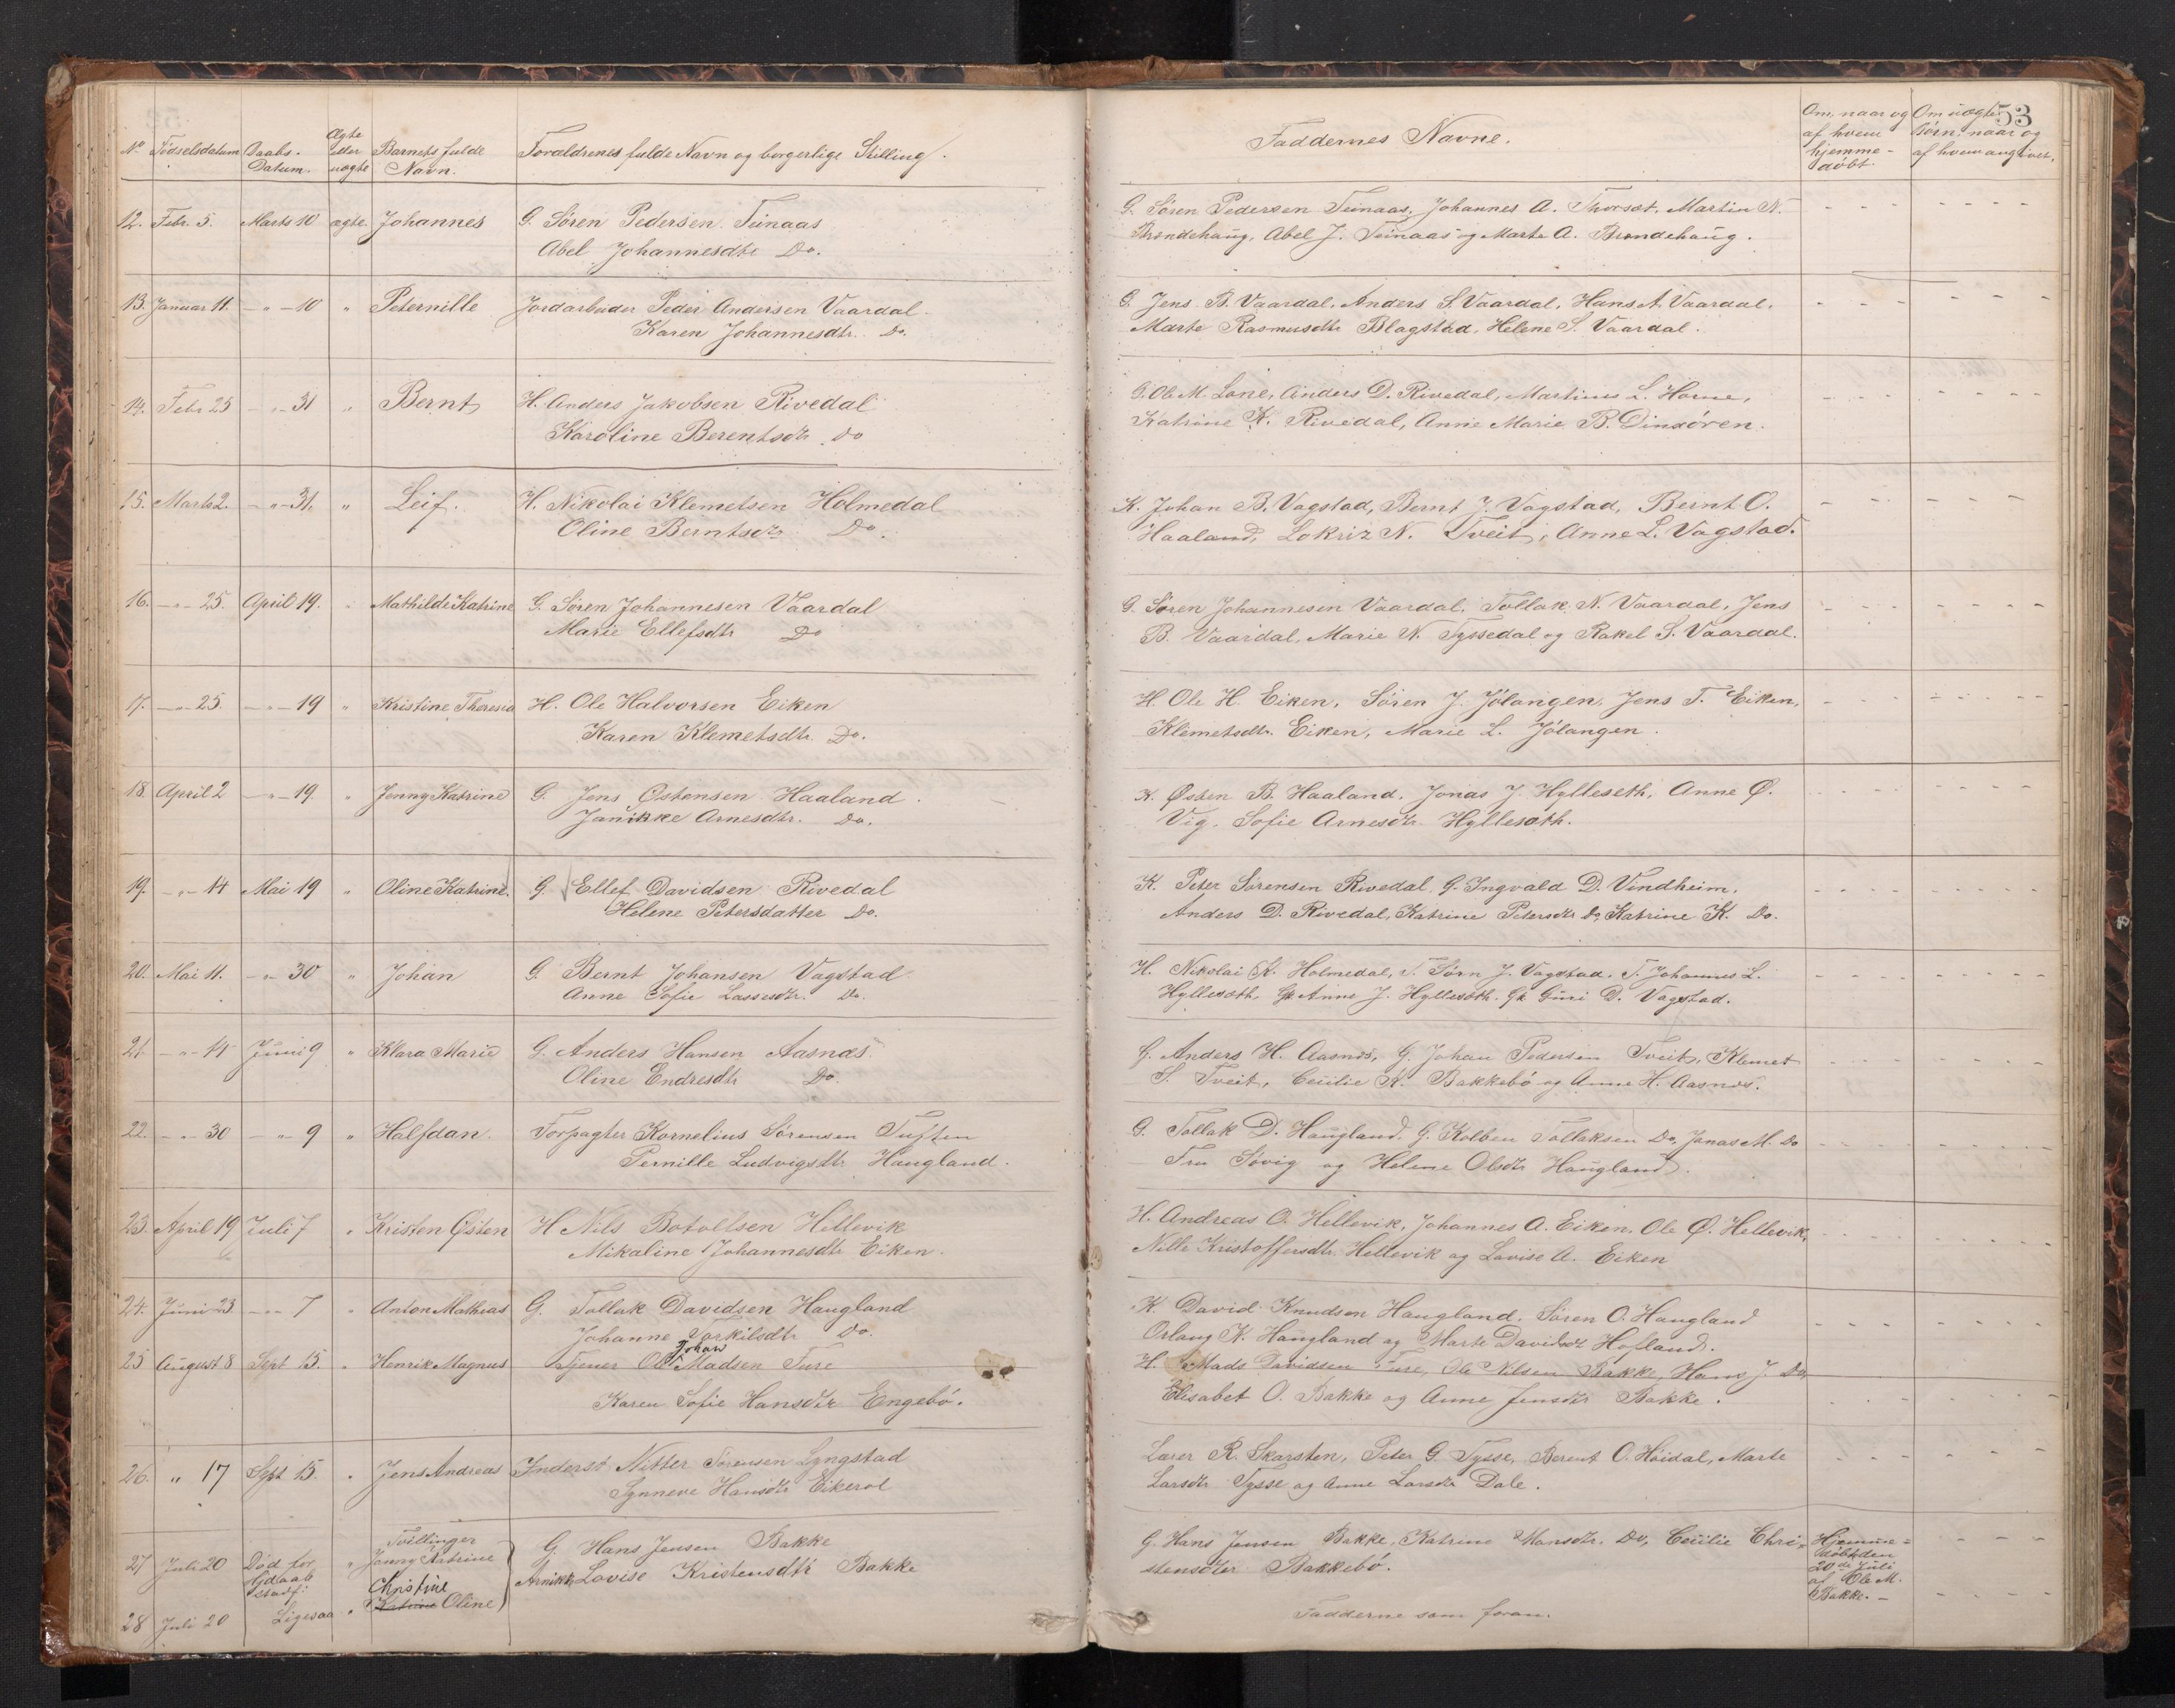 53
No Födselsdatum Daabs-Datum. Ægte eller uægte Barnets fulde Navn. Forældrenes fulde Navn og borgerlige Stilling.
Faddernes Navne. Om, naar og af hvem hjemmedöbt. Om uægte Börn: naar og af hvem angivet.
12. Febr. 5. Marts 10 ægte. Johannes G. Sören Pedersen Teinaas
Abel Johannesdtr Do.
G. Sören Pedersen Teinaas, Johannes A. Thorsæt, Martin N.
Brondehaug, Abel J. Teinaas og Marte A. Brondehaug.
13. Januar 11. - " - 10 " Peternille Jordarbeider Peder Andersen Vaardal.
Karen Johannesdtr. Do.
G. Jens B. Vaardal, Anders S. Vaardal, Hans A. Vaardal.
Marte Rasmusdtr Blagstad, Helene S. Vaardal.
14. Febr 23 - " - 31 " Bernt H. Anders Jakobsen Rivedal
Karoline Berentsdtr Do
G. Ole M. Lone, Anders D. Rivedal, Martinus L. Horne,
Katrine K. Rivedal, Anne Marie B. Dinsören.
15. Marts 2. - " - 31. " Leif. H. Nikolai Klemetsen Holmedal
Oline Berntsdtr Do.
K. Johan B. Vagstad, Bernt J. Vagstad, Bernt O.
Haaland, Lokriz N. Tveit, Anne L. Vagstad.
16. - " - 25. April 19. " Mathilde Katrine G. Sören Johannesen Vaardal
Marie Ellefsdtr Do
G. Sören Johannesen Vaardal, Tollak N. Vaardal, Jens
B. Vaardal, Marie N. Tyssedal og Rakel S. Vaardal.
17. - " - 25. - " - 19 " Kristine Theresia H. Ole Halvorsen Eiken
Karen Klemetsdtr. Do.
H. Ole H. Eiken, Sören J. Jölangen, Jens T. Eiken,
Klemetsdtr. Eiken, Marie L. Jölangen.
18. April 2 - " - 19. " Jenny Katrine G. Jens Østensen Haaland.
Janikke Arnesdtr. Do.
K. Østen B. Haaland, Jonas J. Hylleseth, Anne Ø.
Vig. Sofie Arnesdtr. Hyllesæth.
19. - " - 14 Mai 19 " Oline Katrine. G. Ellef Davidsen Rivedal
Helene Petersdatter Do.
K. Peter Sörensen Rivedal, G. Ingvald D. Vindheim,
Anders D. Rivedal, Katrine Petersdtr Do, Katrine K. Do.
20. Mai 11. - " - 30 " Johan G. Bernt Johansen Vagstad
Anne Sofie Lassesdtr. Do.
H. Nikolai K. Holmedal, T. Törn J. Vagstad, T. Johannes L.
Hyllesæth, Gk Anne J. Hyllesæth. Gk Guri D. Vagstad.
21. - " - 14 Juni 9 " Klara Marie G. Anders Hansen Aasnæs.
Oline Endresdtr Do.
G. Anders H. Aasnæs, G. Johan Pedersen Tveit, Klemet
S. Tveit, Cecilie K. Bakkebö og Anne H. Aasnæs.
22. - " - 30 - " 9 " Halfdan. Forpagter Kornelius Sörensen Tuften
Pernille Ludvigsdtr Haugland.
G. Tollak D. Haugland. G. Kolben Tollaksen Do, Jonas M. Do
Fru Sövig og Helene Olsdtr Haugland.
23. April 19 Juli 7 " Kristen Østen H Nils Botoltsen Hellevik
Mikaline Johannesdtr Eiken.
H. Andreas O. Hellevik, Johannes A. Eiken, Ole Ø. Hellevik,
Nille Kristoffersdtr Hellevik og Lovise A. Eiken
24. Juni 23 - " - 7 " Anton Mathias G. Tollak Davidsen Haugland
Johanne Torkilsdtr Do.
K. David Knudsen Haugland. Sören O. Haugland
Orlaug K. Haugland og Marte Davidsdtr Hofland.
25 August 8 Sept 15. " Henrik Magnus Tjener Ole Johan Madsen Fure
Karen Sofie Hansdtr Engebö.
H. Mads Davidsen Fure, Ole Nilsen Bakke, Hans J. Do,
Elisabet O. Bakke og Anne Jensdtr Bakke.
26. " 17 Sept 15. " Jens Andreas Inderst Nitter Sörensen Lyngstad
Synneve Hansdtr Eikerol
Lærer R. Skarsten, Peter G. Tysse, Berent O. Höidal, Marte
Larsdtr Tysse og Anne Larsdtr Dale.
27 Juli 20 Död för Hjdaab stadf: " Tvillinger Jenny Katrine G. Hans Jensen Bakke
Christine Arnikk Lovise Kristensdtr Bakke
G. Hans Jensen Bakke, Katrine Hansdtr. Do, Cecilie Chri-
stensdtr Bakkebö.
Hjemme-
döbt den
20de Juli
af Ole M.
Bakke. -
28 Juli 20 Ligesaa " Katrine Oline
Fadderne som foran.